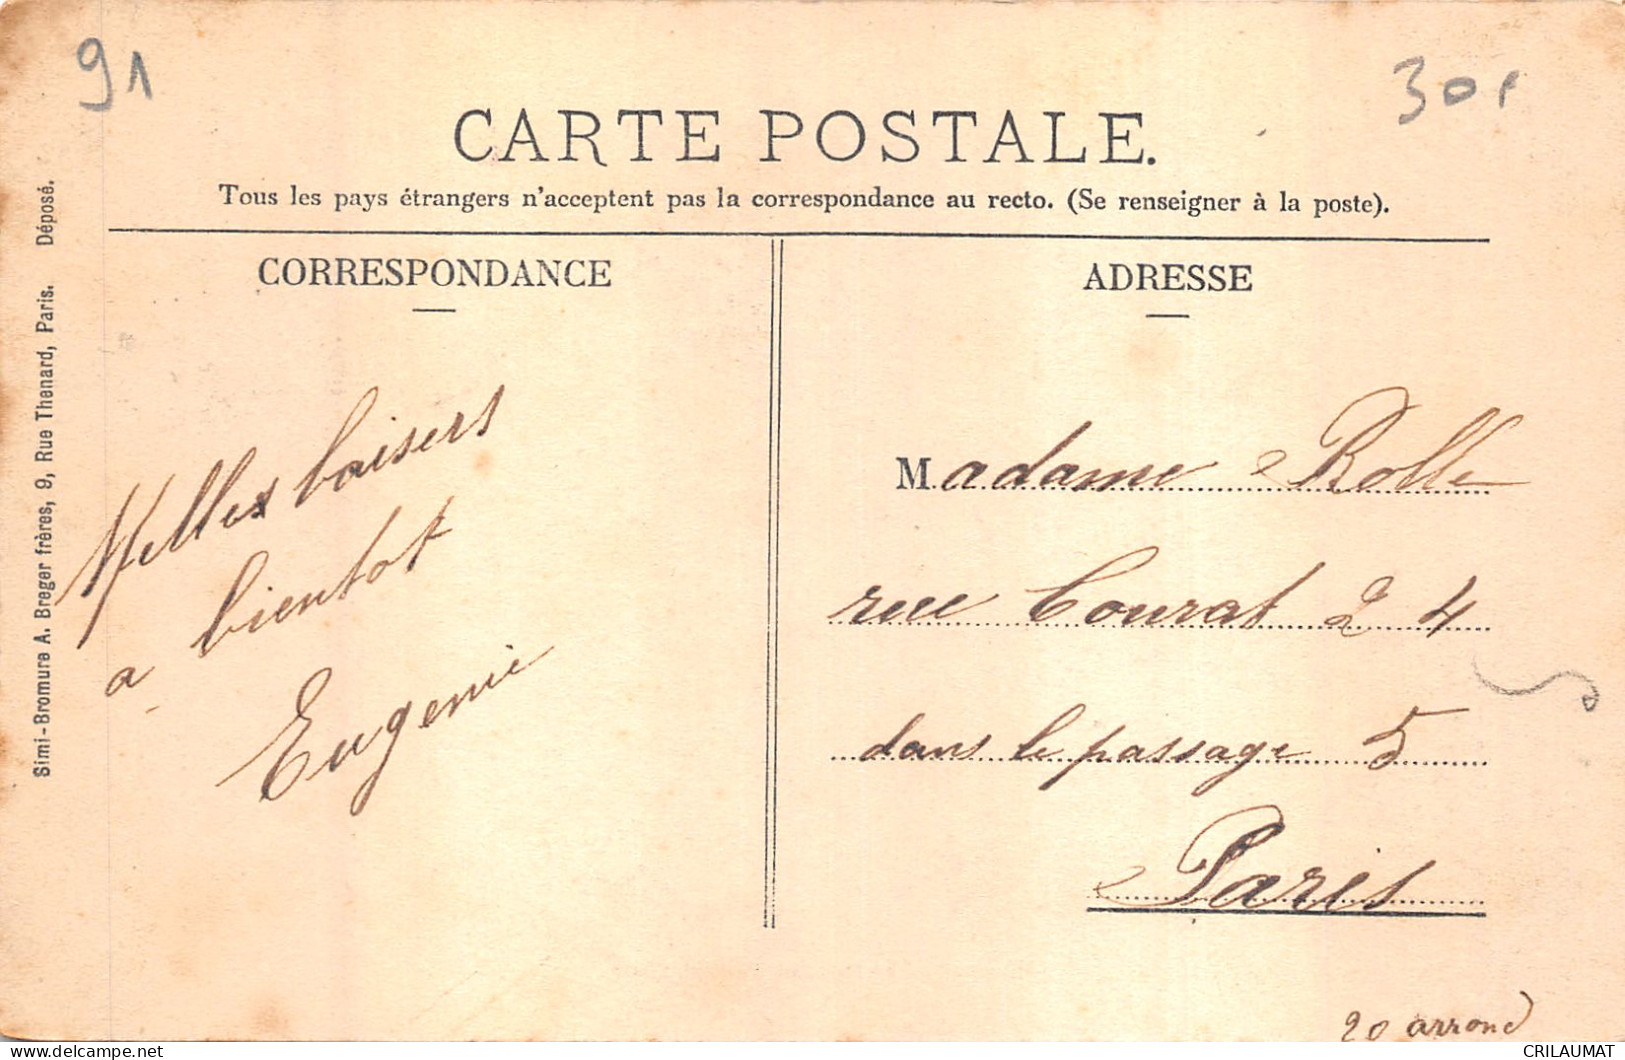 91
30F
CARTE POSTALE.
Tous les pays étrangers n'acceptent pas la correspondance au recto. (Se renseigner à la poste).
Simi-Bromure A. Breger frères, 9, Rue Thenard, Paris. Déposé.
CORRESPONDANCE
Milles baisers
a bientot
Eugenie
ADRESSE
Madame Rolle
rue Courat 24
dans le passage 5
Paris
20 arrond
CRILAUMAT